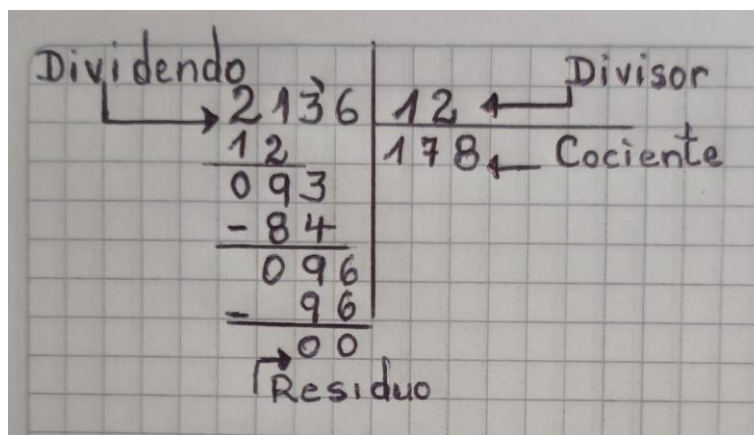 Dividendo
Divisor
2136 12
12 178 Cociente
093
- 84
096
- 96
00
Residuo